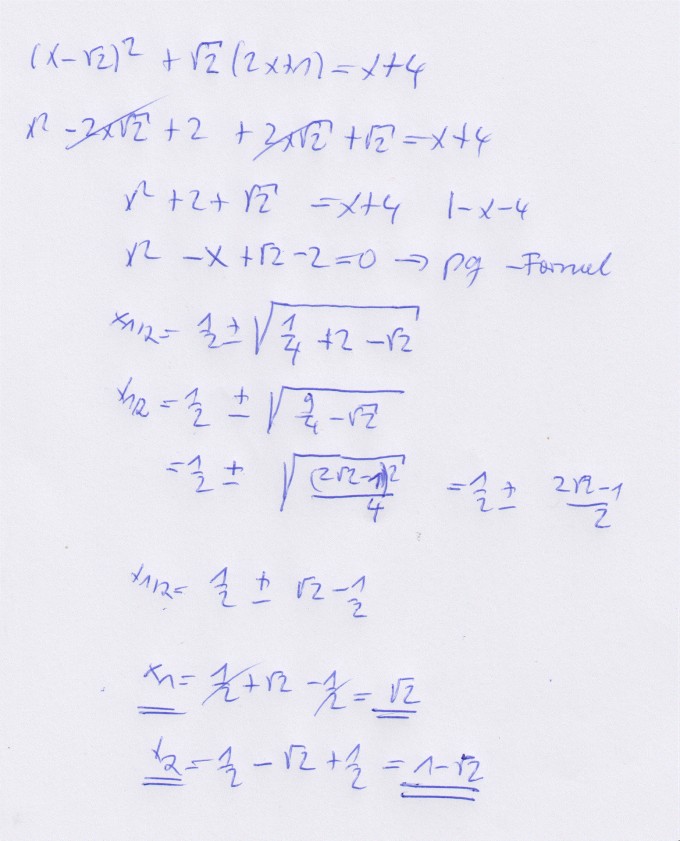 (x-√2)² + √2 (2x+1) = x+4
x² - 2x√2 + 2 + 2x√2 + √2 = x+4
x² + 2 + √2 = x+4 |-x-4
x² - x + √2 - 2 = 0 → pq-Formel
x1/2 = 1/2 ± √(1/4 + 2 - √2)
x1/2 = 1/2 ± √(9/4 - √2)
= 1/2 ± √((2√2-1)²/4) = 1/2 ± (2√2-1)/2
x1/2 = 1/2 ± √2 - 1/2
x1 = 1/2 + √2 - 1/2 = √2
x2 = 1/2 - √2 + 1/2 = 1-√2